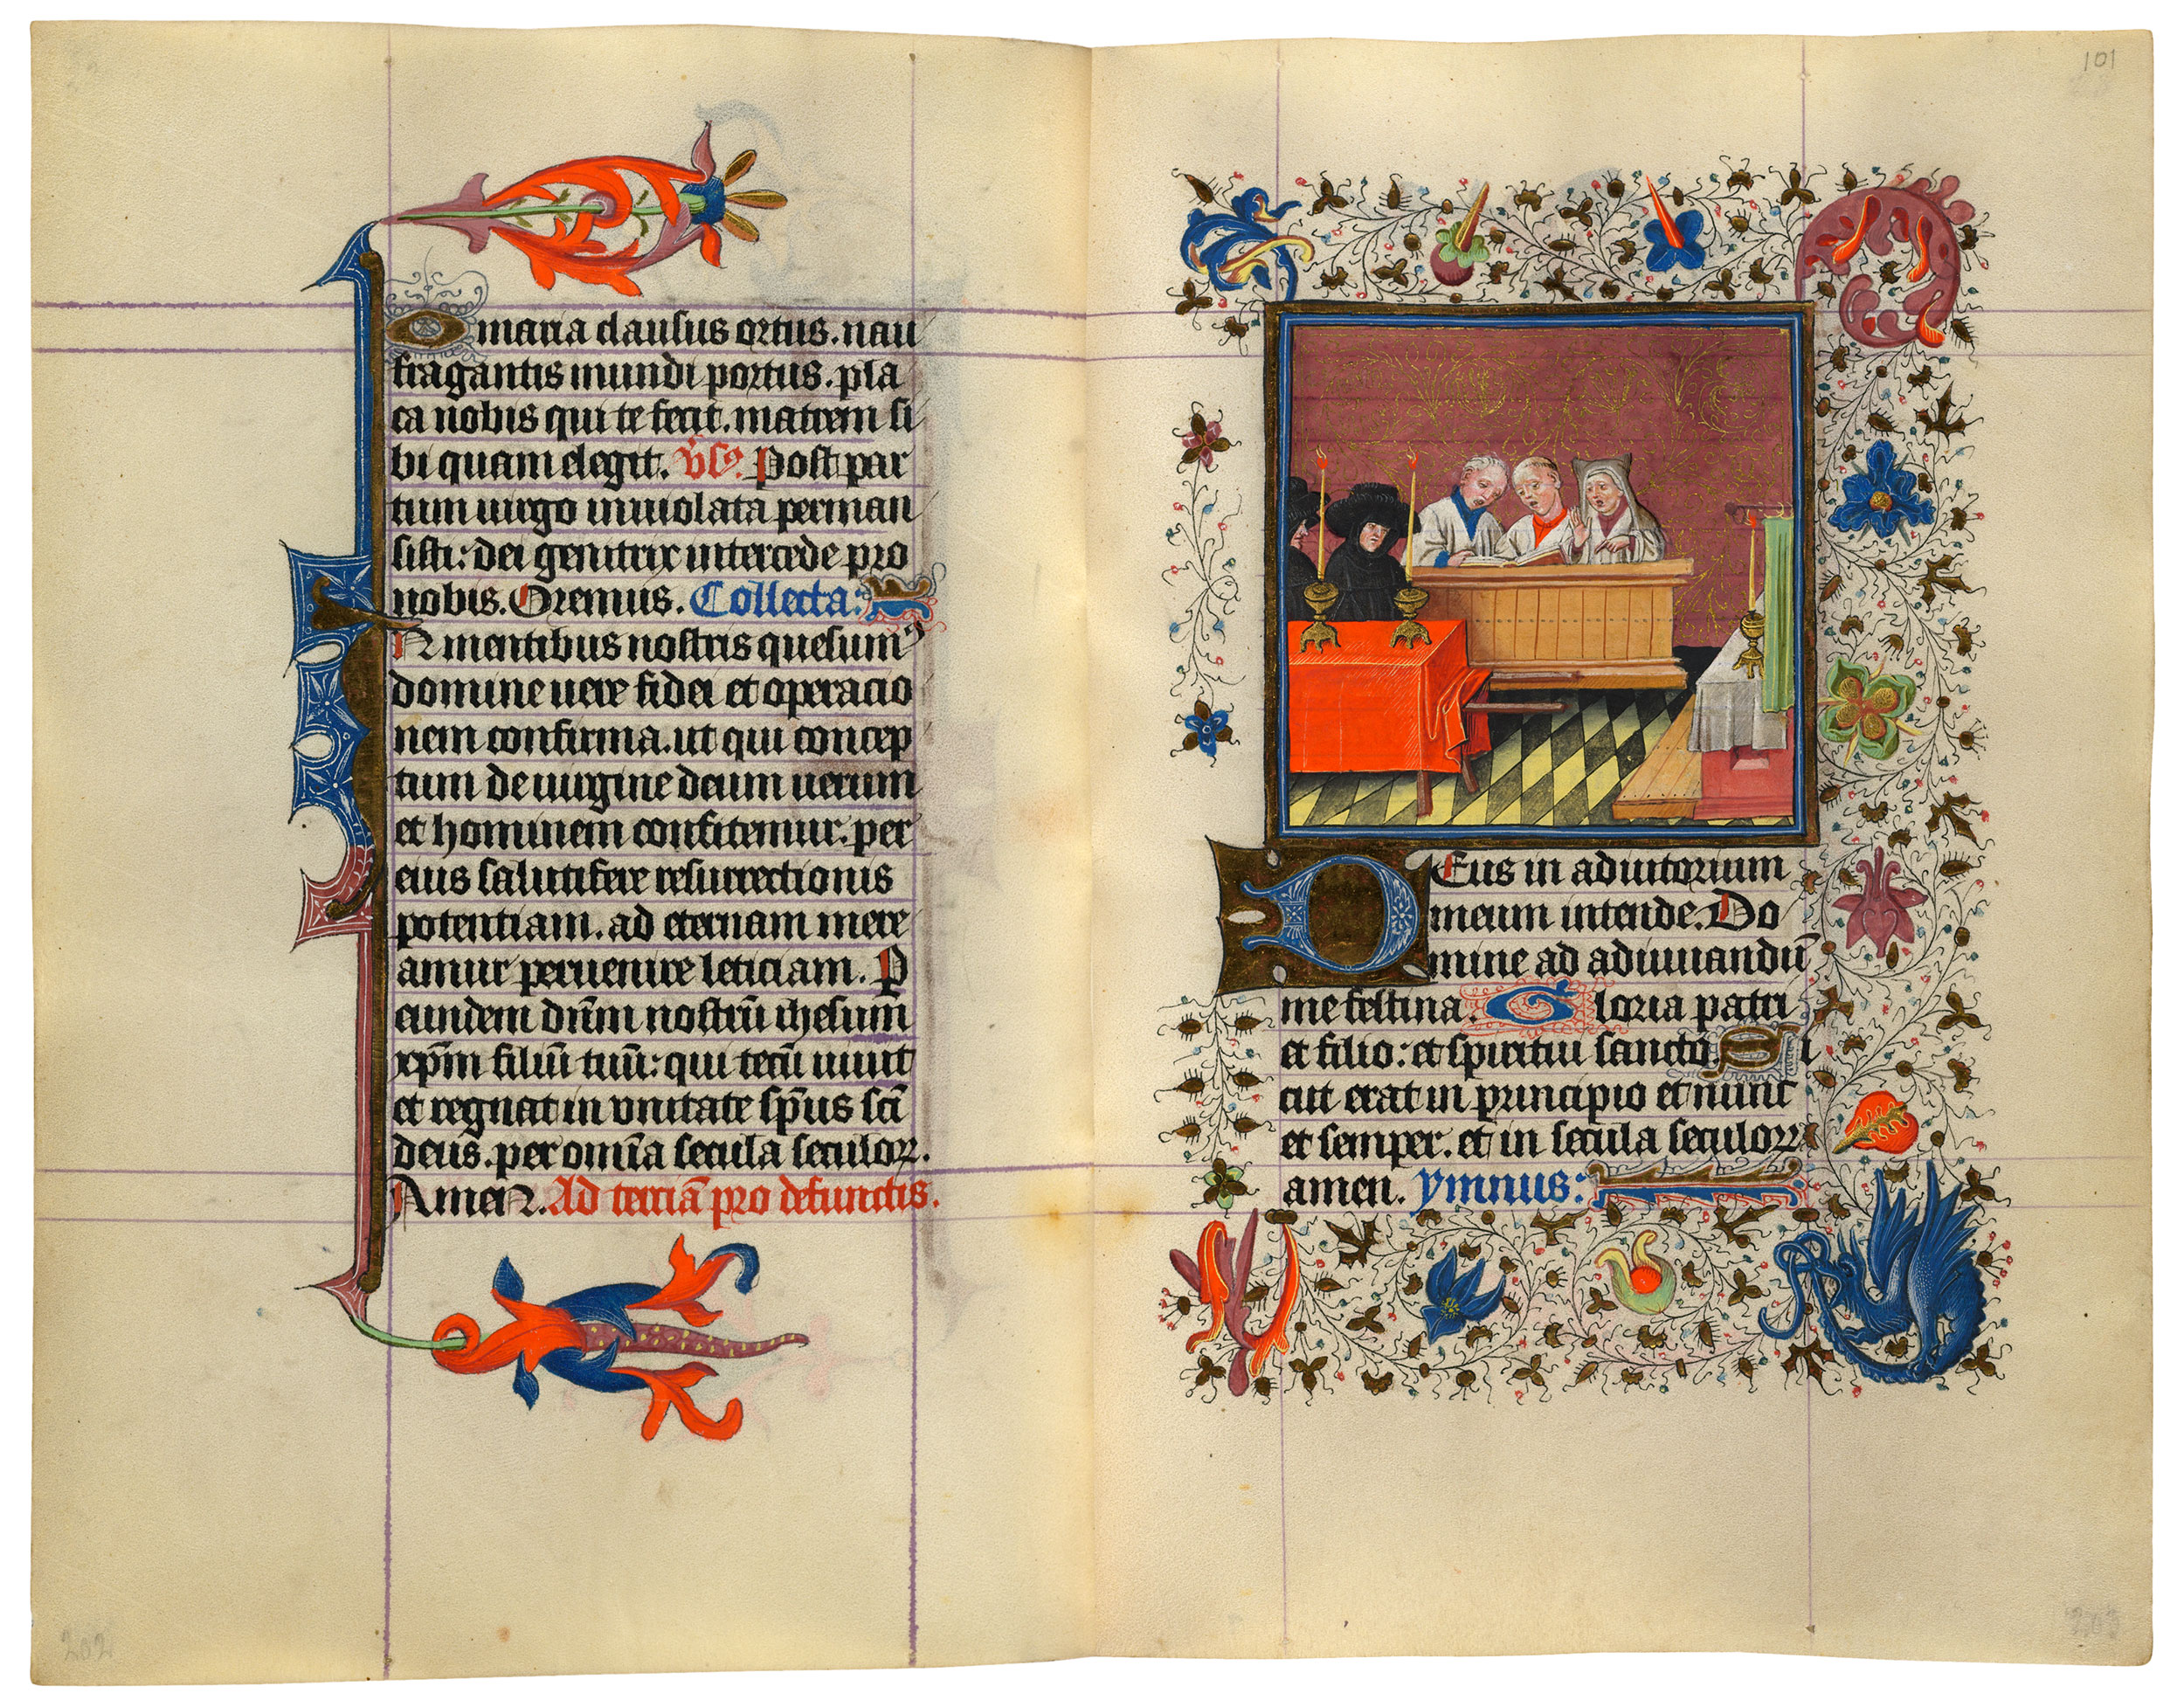 O maria clausus ortus. nau
fragantis mundi portus. pla
ca nobis qui te fecit. matrem si
bi quam elegit. v̄sꝰ. Post par
tum uirgo inuiolata perman
sisti: dei genitrix intercede pro
nobis. Oremus. Collecta:
IN mentibus nostris quesumꝰ
domine uere fidei et operacio
nem confirma. ut qui concep
tum de uirgine deum uerum
et hominem confitemur. per
eius salutifere resurrectionis
potentiam. ad eternam mere
amur peruenire leticiam. P
eundem dn̄m nostrū ihesum
xp̄m filiū tuū: qui tecū uiuit
et regnat in vnitate sp̄us sc̄i
deus. per omīa secula seculoꝝ.
AmeN. Ad terciā pro defunctis.
202
101
DEus in adiutorium
meum intende. Do
mine ad adiuuandū
me festina. Gloria patri
et filio: et spiritui sancto. Si
cut erat in principio et nunc
et semper. et in secula seculoꝝ
amen. ymnus:
203